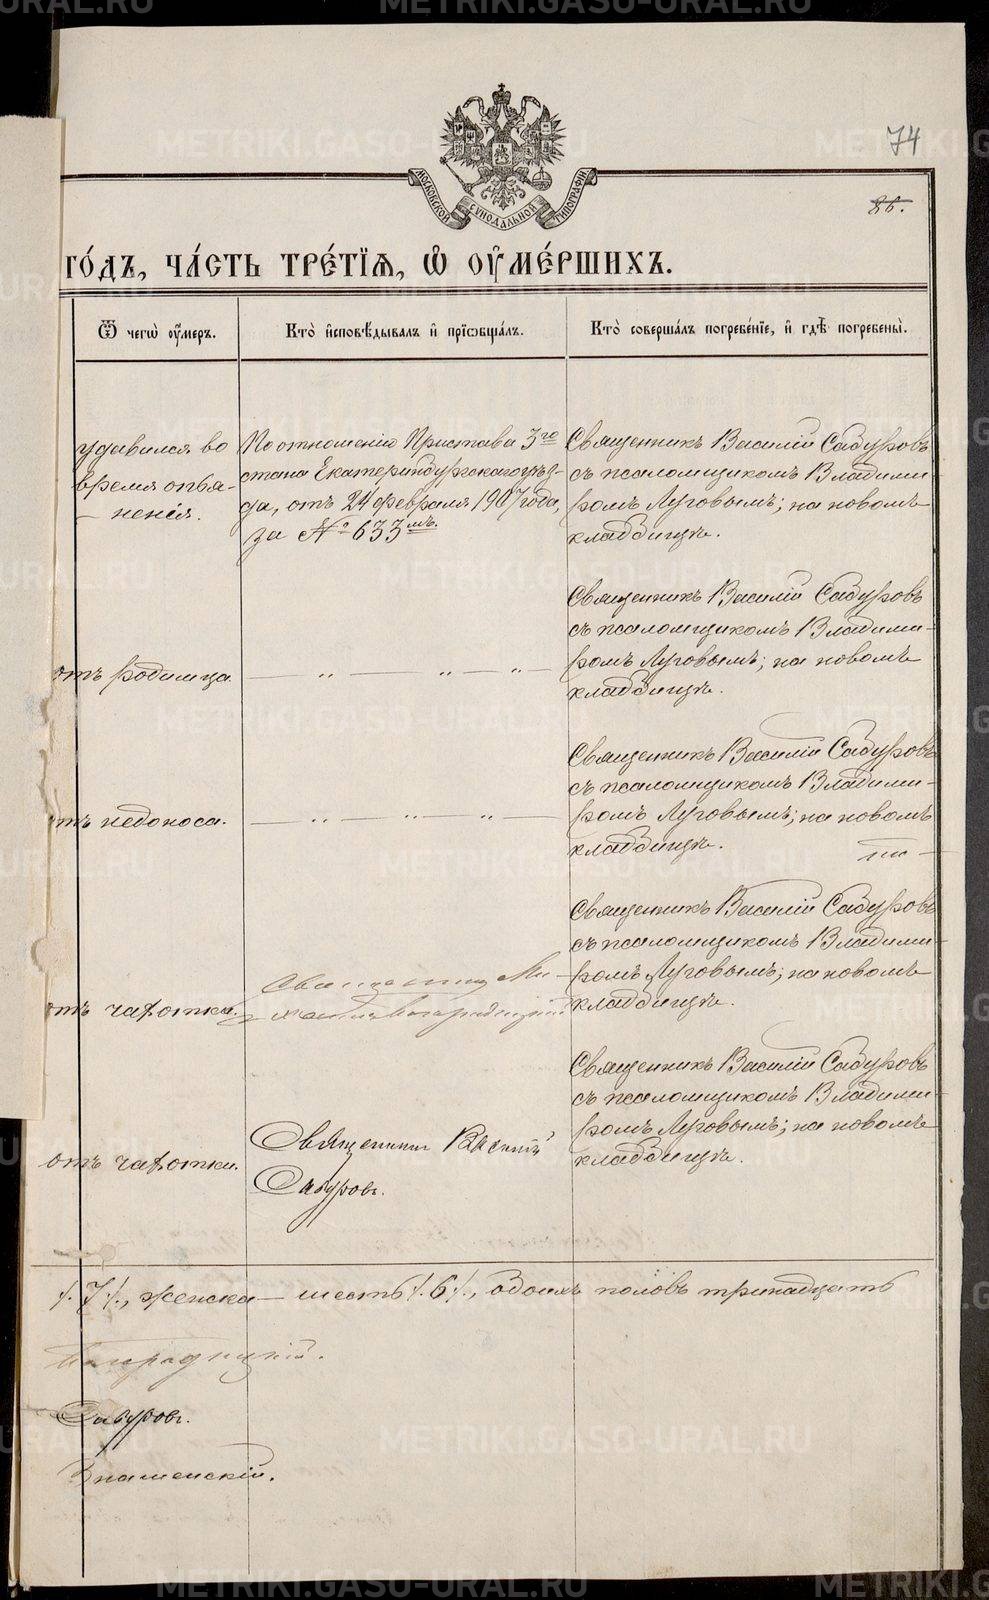 METRIKI.GASO-URAL.RU
74
МОСКОВСКОЙ СѴНОДАЛЬНОЙ ТИПОГРАФІИ
86.
ГО́ДЪ, ЧА́СТЬ ТРЕ́ТІѦ, Ѡ ОУМЕ́РШИХЪ.
Ѿ чегѡ̀ оу́меръ.
Кто̀ и҆сповѣ́дывалъ и҆ прїѡбща́лъ.
Кто̀ соверша́лъ погребе́нїе, и҆ гдѣ̀ погребены̀.
удавился во
время опья-
ненія.
По отношенію Пристава 3го
стана Екатеринбургскаго уѣз-
да, отъ 24 февраля 1907 года,
за № 633мъ.
Священникъ Василій Сабуровъ
съ псаломщикомъ Владими
ромъ Луговымъ; на новомъ
кладбищѣ.
отъ родимца
— „ — „ — „ —
Священникъ Василій Сабуровъ
съ псаломщикомъ Владими-
ромъ Луговымъ; на новомъ
кладбищѣ.
отъ недоноса.
— „ — „ — „ —
Священникъ Василій Сабуровъ
съ псаломщикомъ Владими-
ромъ Луговымъ; на новомъ
кладбищѣ.
отъ чахотки.
Священник Ми-
хаил
Священникъ Василій Сабуровъ
съ псаломщикомъ Владими-
ромъ Луговымъ; на новомъ
кладбищѣ.
отъ чахотки.
Священник Василій
Сабуровъ.
Священникъ Василій Сабуровъ
съ псаломщикомъ Владими-
ромъ Луговымъ; на новомъ
кладбищѣ.
/. 7 /., женска — шесть /. 6 /., обоихъ половъ тринадцать
Сабуровъ.
Знаменскій.